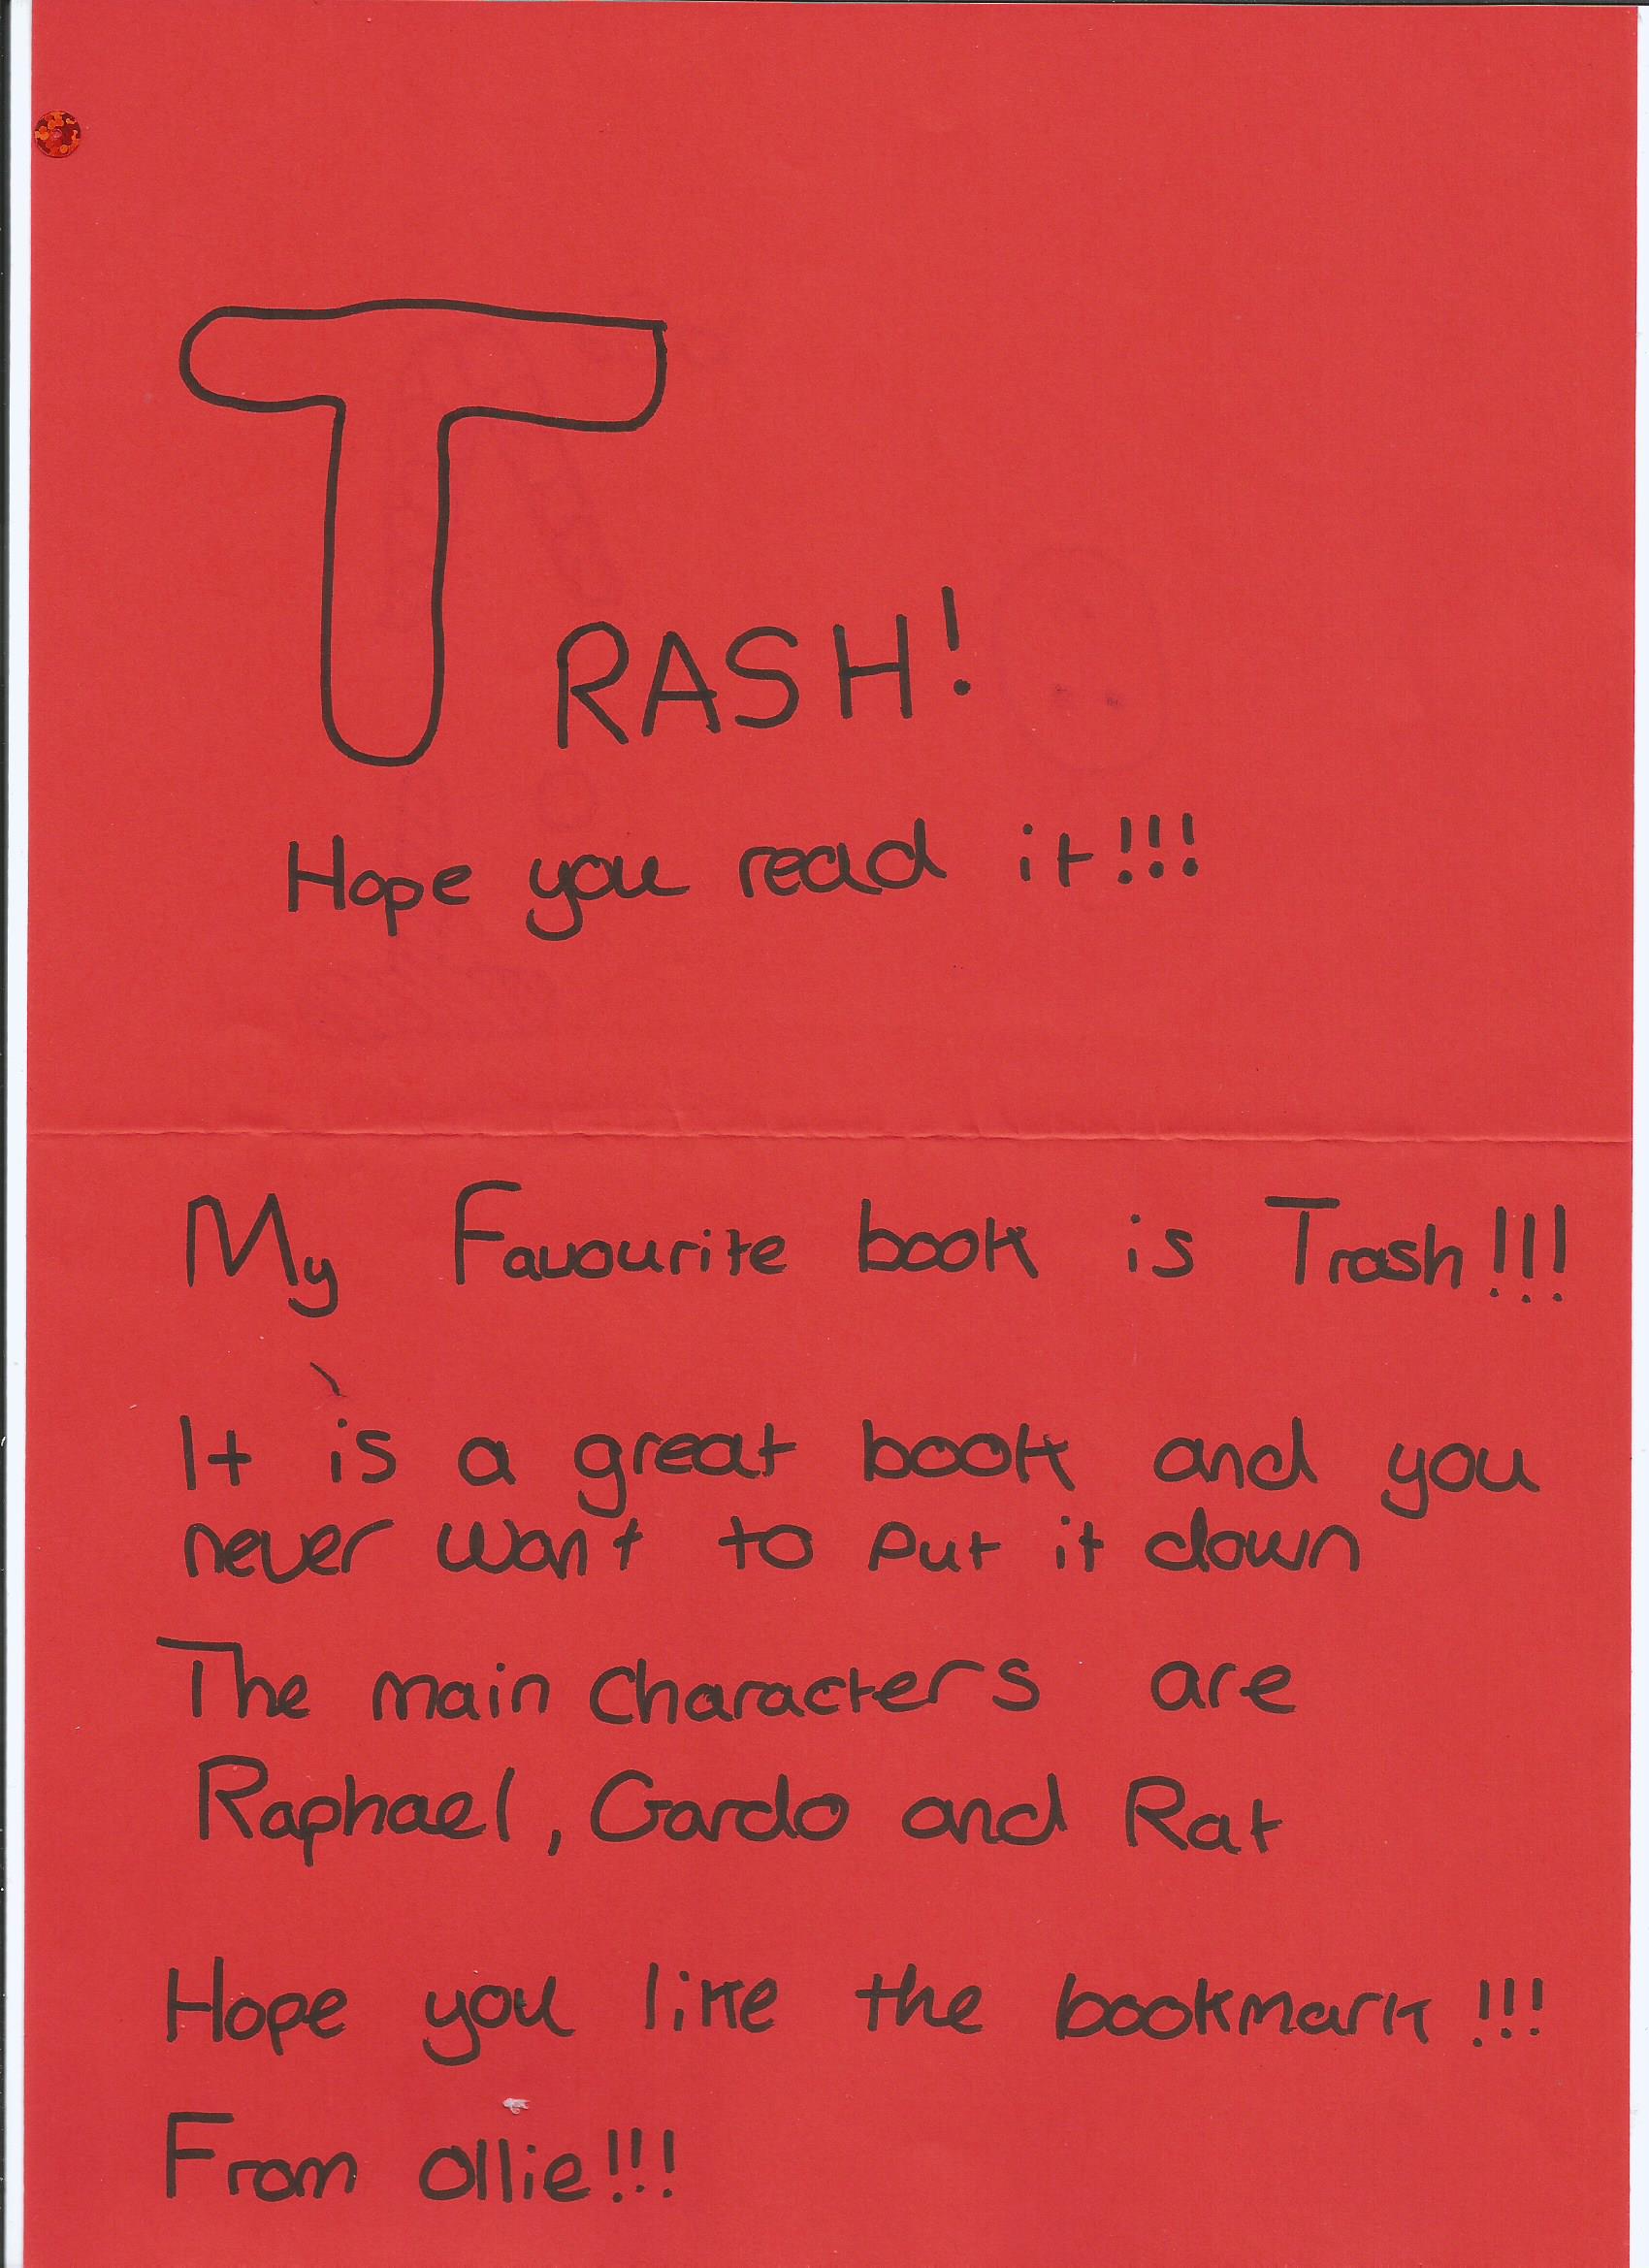 TRASH!
Hope you read it!!!
My Favourite book is Trash!!!
It is a great book and you
never want to put it down
The main characters are
Raphael, Gardo and Rat
Hope you like the bookmark!!!
From Ollie!!!